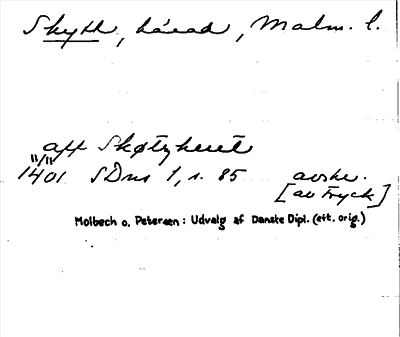 Skytt, härad, Malm. l.
aff Skøtzheret
11/11
1401 SDns 1, s. 85 avskr.
[av tryck]
Molbech o. Petersen: Udvalg af Danske Dipl. (eft. orig.)